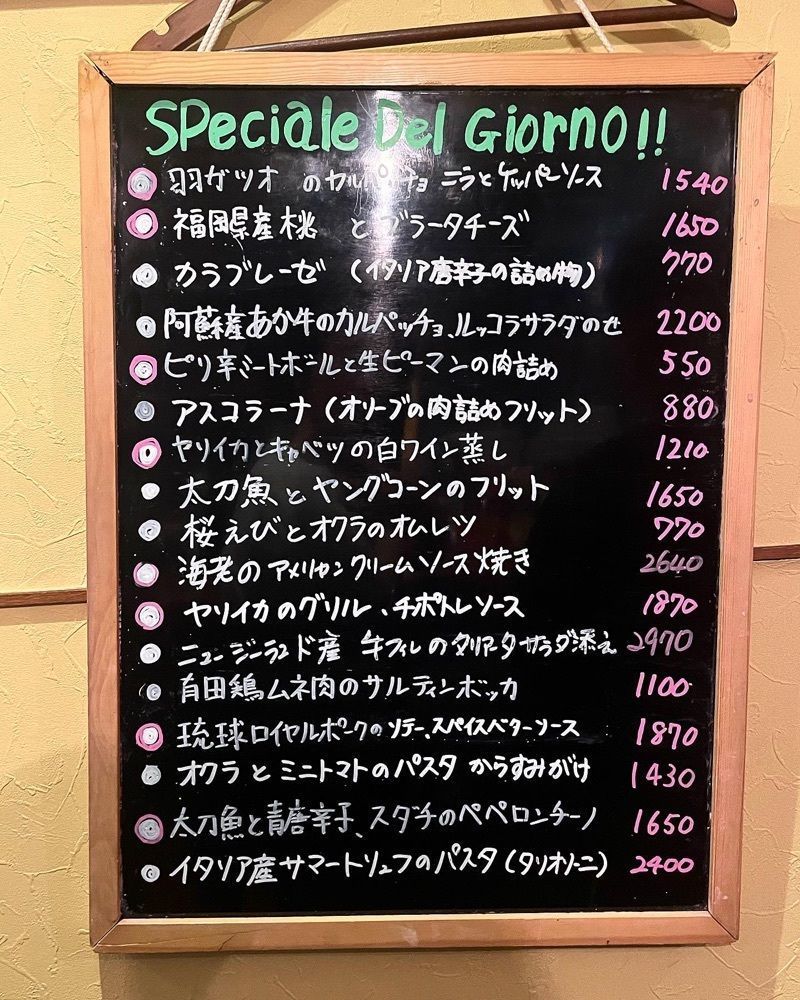 SPeciale Del GiornO!!
羽ガツオ のカルパッチョ ニラとケッパーソース 1540
福岡県産桃 とブラータチーズ 1650
カラブレーゼ (イタリア唐辛子の詰め物) 770
阿蘇産あか牛のカルパッチョ、ルッコラサラダのせ 2200
ピリ辛ミートボールと生ピーマンの肉詰め 550
アスコラーナ (オリーブの肉詰めフリット) 880
ヤリイカとキャベツの白ワイン蒸し 1210
太刀魚とヤングコーンのフリット 1650
桜えびとオクラのオムレツ 770
海老のアメリケンクリームソース焼き 2640
ヤリイカのグリル、チポトレソース 1870
ニュージーランド産 牛フィレのタリアータサラダ添え 2970
有田鶏ムネ肉のサルティンボッカ 1100
琉球ロイヤルポークのソテー、スパイスバターソース 1870
オクラとミニトマトのパスタ からすみがけ 1430
太刀魚と青唐辛子、スダチのペペロンチーノ 1650
イタリア産サマートリュフのパスタ (タリオリーニ) 2400